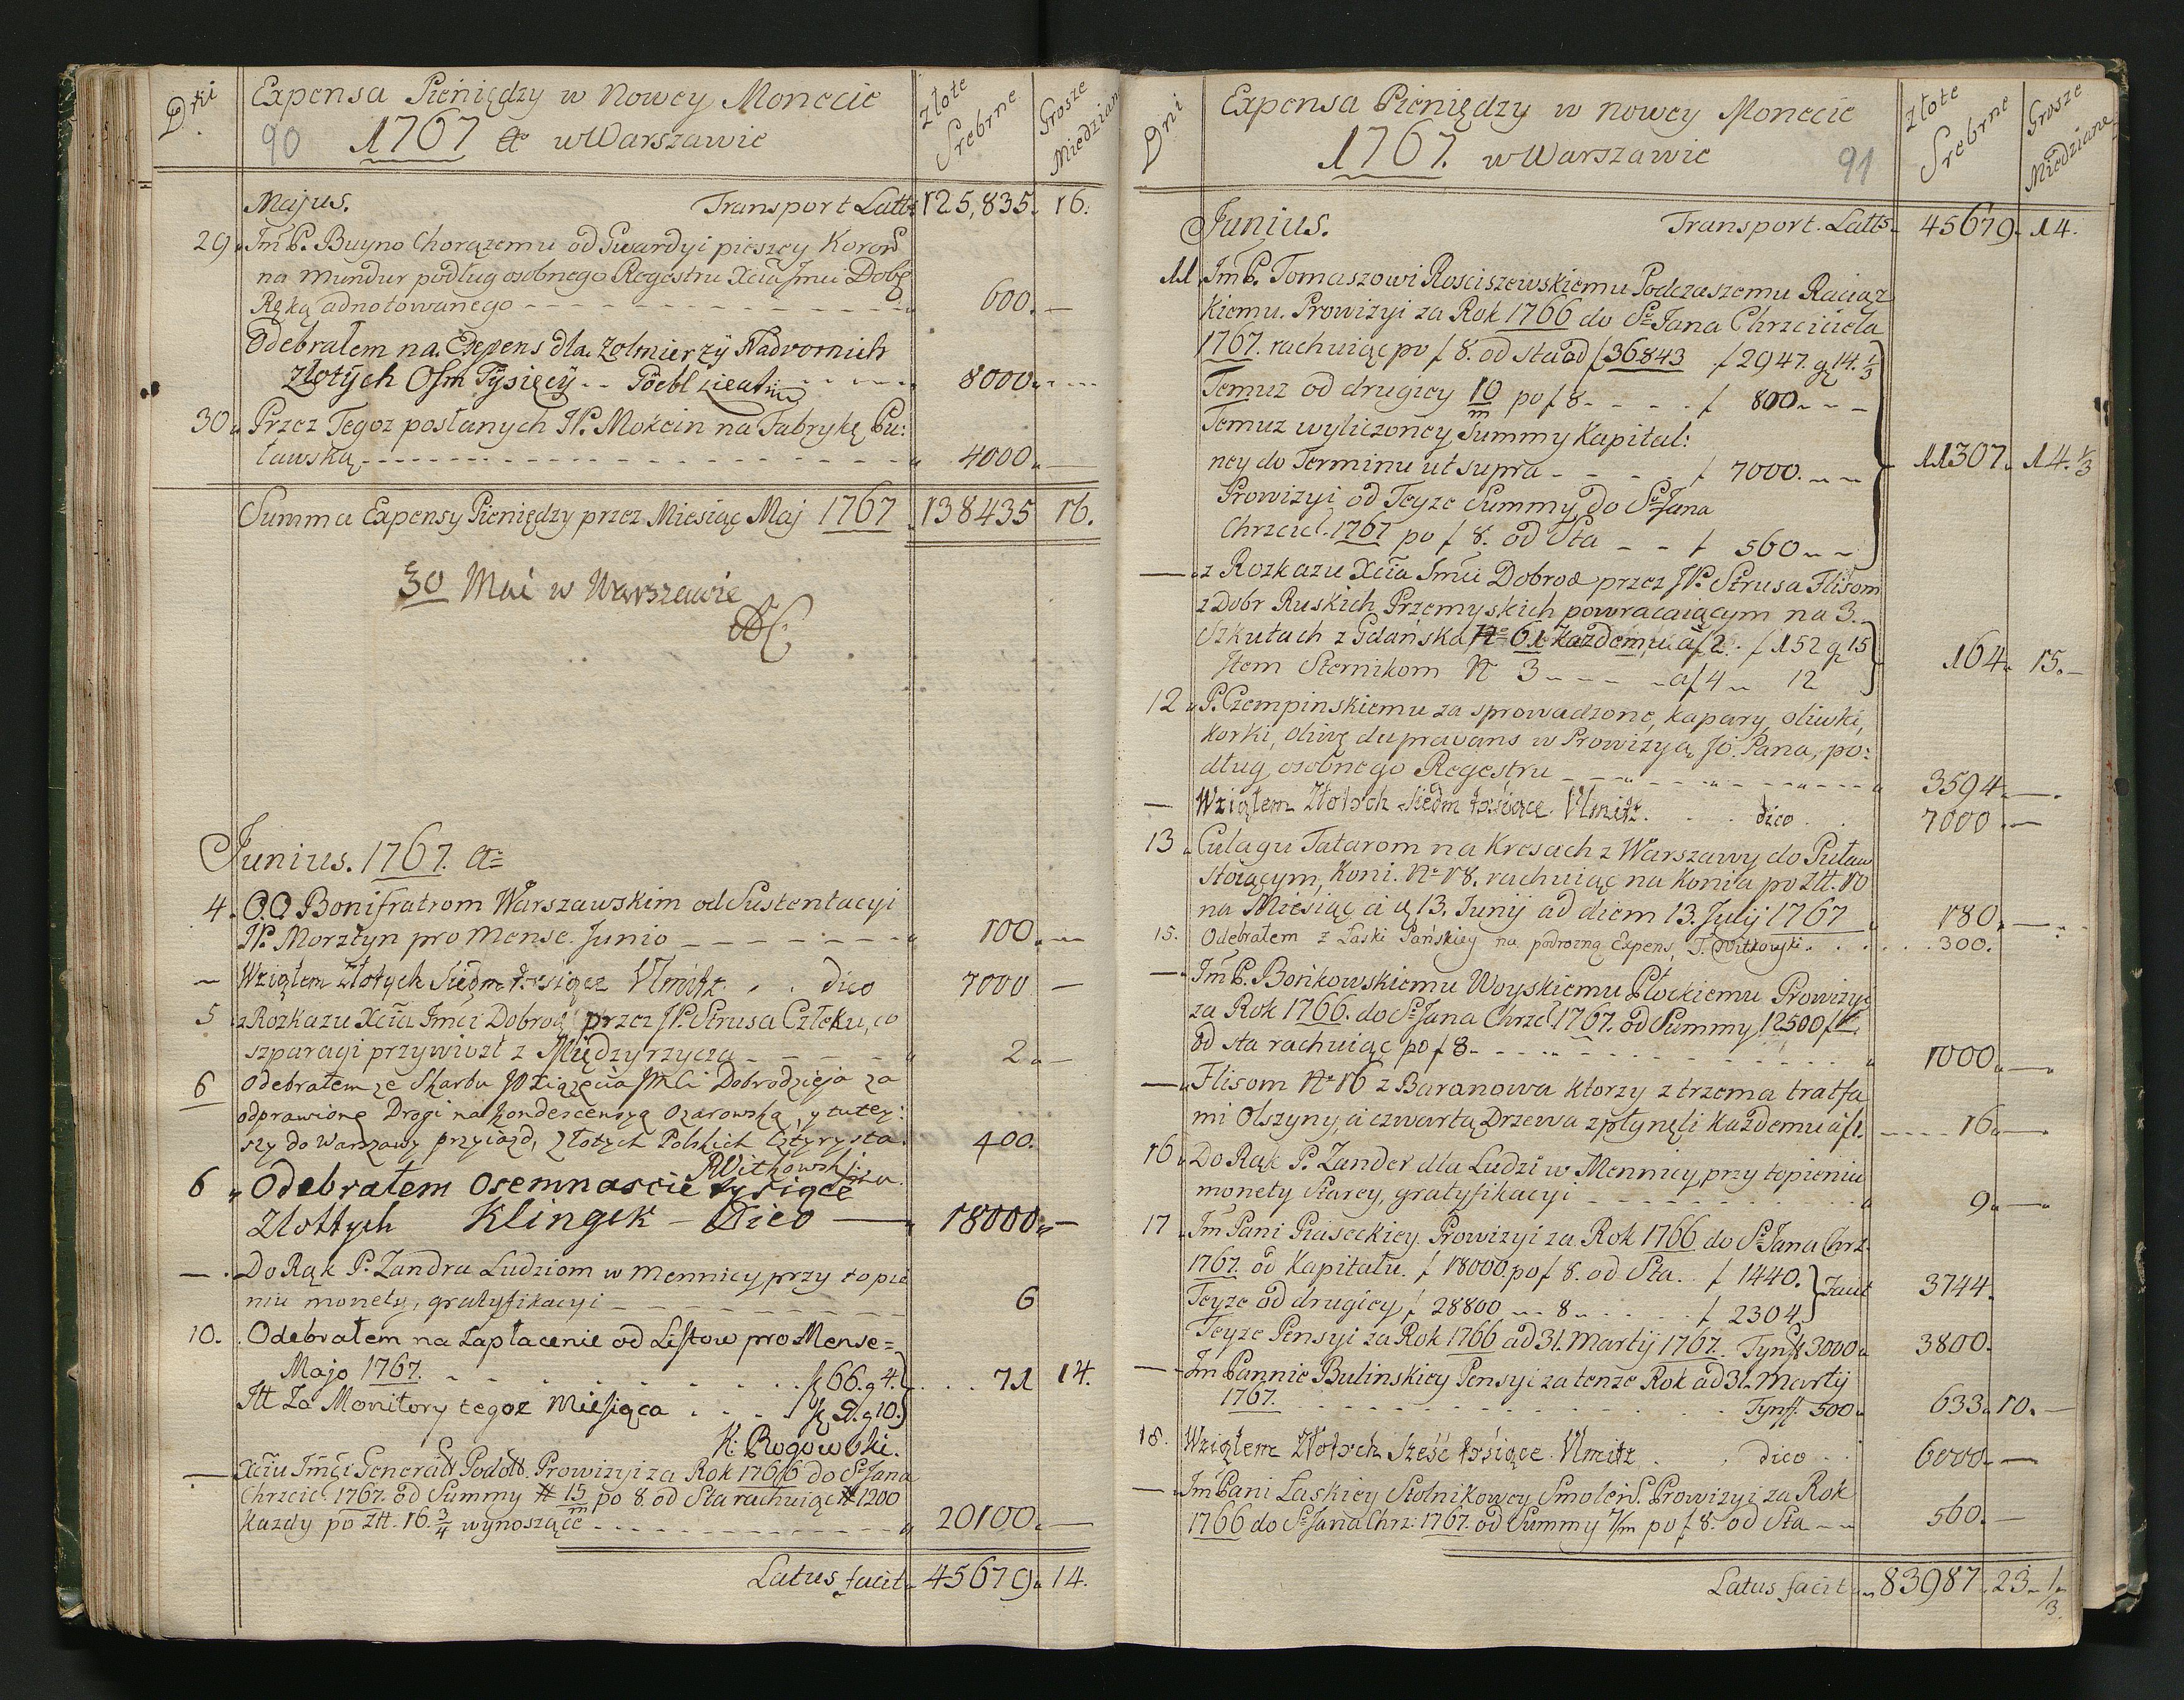 Dni
Expensa Pieniędzy w Nowey Monecie
złote Srebrne
Grosze Miedziane
90 1767 w Warszawie
Majus. Transport Latt: 125,835. 16.
29. Im P. Buyno Chorązemu od Gwardyi pieszey Koron
na Mundur podług osobnego Regestru Xcia Jmci Dobą
Ręką adnotowanego 600.
Odebrałem na Expens dla Zolmierzÿ Nadvornich
złotÿch Osm Tÿsięcÿ 8000
30. Przez Tegoz posłanych JP. Mokcin na Fabrykę Pu:
ławską 4000.
Summa Expensy Pieniędzy przez Miesiąc Maj 1767 138435 16.
30 Mai w Warszawie
AC
Junius. 1767. a
4. O.O Bonifratrom Warszawskim od Sustentacyi
JP. Morztyn pro Mense Junio 100.
Wziąłem złotych Siedm tysięcz Ulmitz dico 7000
5. z Rozkazu Xcia Jmci Dobrod przez JP. Strusa Człeku, co
szparagi przywiozł z Międzyrzycza 2.
6 Odebrałem ze Skarbu JO Xiązęcia JMci Dobrodzieja za
odprawione Drogi na kondescenszą Ozarowską, y tutey:
szy do Warszawy przyiazd, złotych Polskich Cztyrysta. 400.
RWitkowski
6. Odebrałem Osemnascie tysiące
złottych Klingek – Dico 18000.
Do Rąk P. Zandra Ludziom w Mennicy przy topie
niu monety, gratyfikacyi 6
10. Odebrałem na Zapłacenie od Listow pro Mense
Majo 1767. f 66. g 4. 71 14.
Itt Za Monitory tegoz Miesiąca f 5. g 10.
K: Rogowski.
Xciu Jmci Generałł Podoll. Prowizyi za Rok 1766 do S Jana
Chrzcic 1767. od Summy # 15/m po 8. od Sta rachuiąc # 1200
Kazdy po Złł. 16. 3/4 wynoszące 20100.
Latus facit 45679. 14.
Dni
Expensa Pieniędzy w nowey Monecie
złote Srebrne
Grosze Miedziane
1767. w Warszawie 91
Junius. Transport. Latts. 45679. 14.
11. Im P. Tomaszowi Rosciszewskiemu Podczaszemu Raciąz
kiemu. Prowizyi za Rok 1766 do S Jana Chrzciciela
1767. rachuiąc po f 8. od sta od f 36843 f 2947. g 14. 1/3
Temuz od drugiey 10/m po f 8 f 800
Temuz wyliczoney Summy Kapital:
ney do Terminu ut supra f 7000. 11307. 14. 1/3
Prowizyi od Teyze Summy do S Jana
Chrzcic. 1767 po f 8. od Sta f 560
z Rozkazu Xcia Jmci Dobrod przez JP. Strusa Flisom
z Dobr Ruskich Przemyskich powracaiącym na 3.
Szkutach z Gdańska No 61 kazdemu a f 2. f 152 g 15
Item Sternikom N 3 a f 4 12 164. 15.
12. P. Czempinskiemu za sprowadzone, kapary, oliwki,
korki, oliwę du pravans w Prowizyą JO. Pana, po:
dług osobnego Regestru 3594.
Wziąłem Złotych Siedm tysiące Ulmitz. dico 7000
13. Culagu Tatarom na Kresach z Warszawy do Puław
stoiącym, Koni. No 18. rachuiąc na Konia po Złł. 10
na Miesiąc a 13. Junij ad diem 13. Julij 1767 180.
15. Odebrałem z Łaski Pańskiey na podrozną Expens, T. Witkowski 300.
Im P. Bońkowskiemu Woyskiemu Płockiemu Prowizyi
za Rok 1766. do S Jana Chrzc 1767. od Summy 12500 f
od sta rachuiąc po f 8 1000.
Flisom No 16 z Baranowa ktorzy z trzema tratfa
mi Olszyny, a czwartą Drzewa zpłynęli kazdemu a f 1. 16.
16. Do Rąk P. Zander dla Ludzi w Mennicy, przy topieniu
monety Starey, gratyfikacyi 9.
17. Im Pani Piaseckiey. Prowizyi za Rok 1766 do S Jana Chrz.
1767. od Kapitału. f 18000. po f 8. od Sta. f 1440. facit 3744.
Teyze od drugiey f 28800 8 f 2304
Teyze Pensyi za Rok 1766 ad 31. Martij 1767. Tynff 3000 3800.
Im Pannie Bulinskiey Pensyi za tenze Rok ad 31. Martij
1767. Tynff. 500 633. 10.
18. Wziąłem Złotych Sześć tysiące Ulmitz dico 6000.
Im Pani Laskiey Stolnikowey Smoleńs. Prowizyi za Rok
1766 do S Jana Chrz: 1767. od Summy 7/m po f 8. od Sta 560.
Latus facit 83987. 23. 1/3.